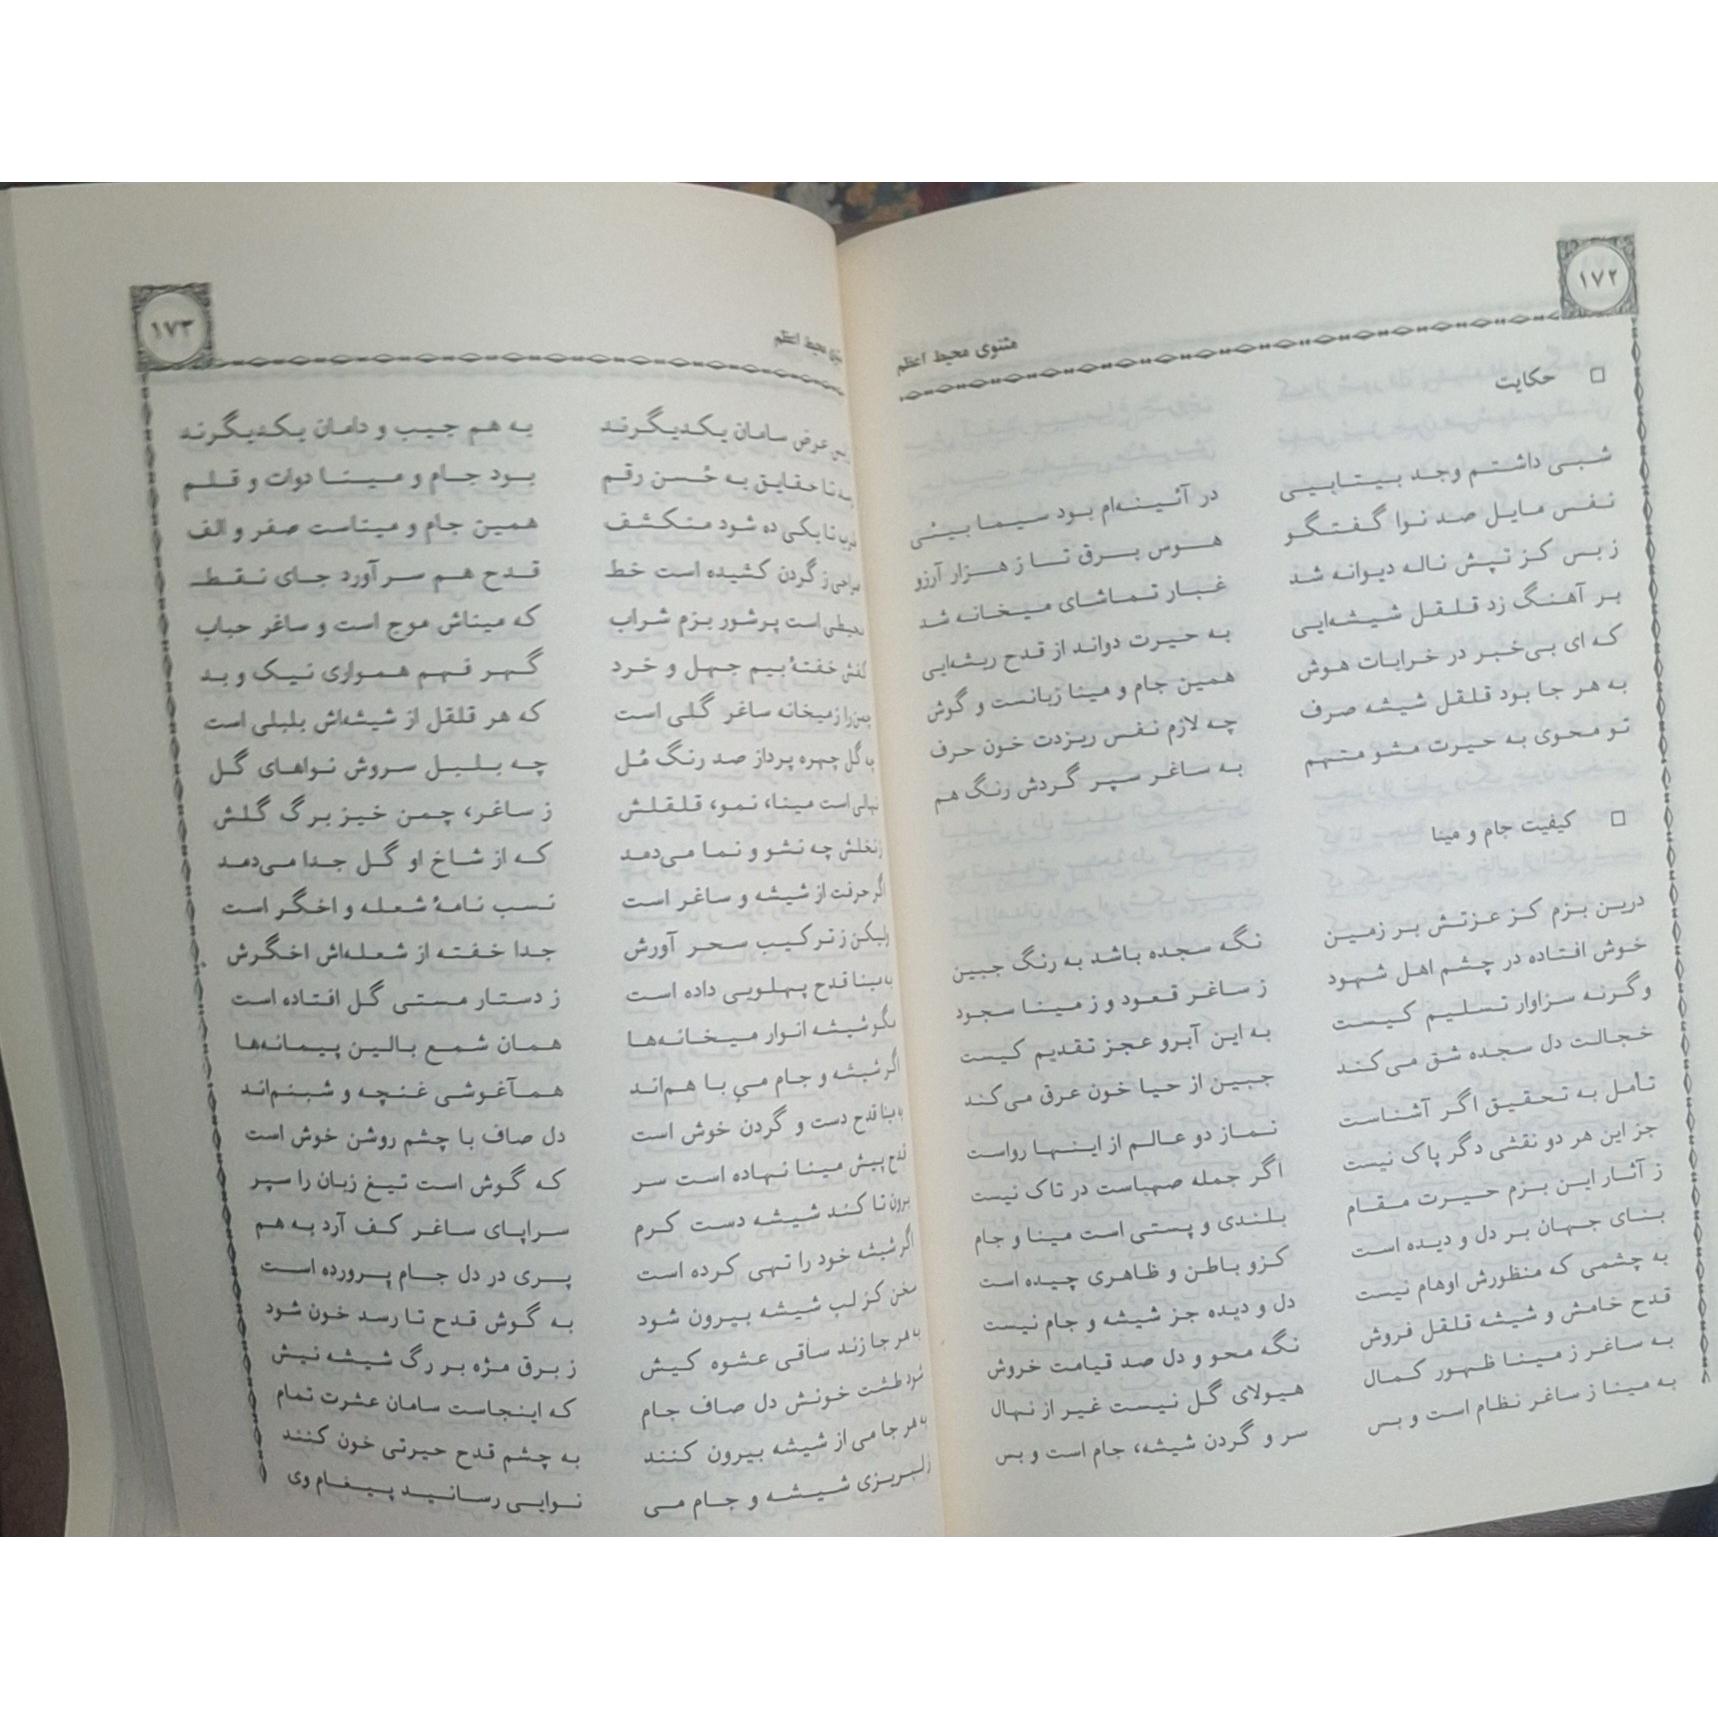 ۱۷۲
مثنوی محیط اعظم
□ حکایت
شبی داشتم وجد بیتابیی در آئینه‌ام بود سیما بیئی
نفس مایل صد نوا گفتگو هوس برق تا ز هزار آرزو
ز بس کز تپش ناله دیوانه شد غبار تماشای میخانه شد
بر آهنگ زد قلقل شیشه‌ایی به حیرت دواند از قدح ریشه‌ایی
که ای بی‌خبر در خرابات هوش همین جام و مینا زبانست و گوش
به هر جا بود قلقل شیشه صرف چه لازم نفس ریزدت خون حرف
تو محوی به حیرت مشو متهم به ساغر سپر گردش رنگ هم
□ کیفیت جام و مینا
درین بزم کز عزتش بر زمین نگه سجده باشد به رنگ جبین
خوش افتاده در چشم اهل شهود ز ساغر قعود و ز مینا سجود
وگرنه سزاوار تسلیم کیست به این آبرو عجز تقدیم کیست
خجالت دل سجده شق می‌کند جبین از حیا خون عرق می‌کند
تأمل به تحقیق اگر آشناست نماز دو عالم از اینها رواست
جز این هر دو نقشی دگر پاک نیست اگر جمله صهباست در تاک نیست
ز آثار این بزم حیرت مقام بلندی و پستی است مینا و جام
بنای جهان بر دل و دیده است کزو باطن و ظاهری چیده است
به چشمی که منظورش اوهام نیست دل و دیده جز شیشه و جام نیست
قدح خامش و شیشه قلقل فروش نگه محو و دل صد قیامت خروش
به ساغر ز مینا ظهور کمال هیولای گل نیست غیر از نهال
به مینا ز ساغر نظام است و بس سر و گردن شیشه، جام است و بس
۱۷۳
محیط اعظم
عرض سامان یکدیگرند به هم جیب و دامان یکدیگرند
تا حقایق به حُسن رقم بود جام و مینا دوات و قلم
تا یکی ده شود منکشف همین جام و میناست صفر و الف
ز گردن کشیده است خط قدح هم سر آورد جای نقطه
است پرشور بزم شراب که میناش موج است و ساغر حباب
خفتهٔ بیم جهل و خرد گهر فهم همواری نیک و بد
را ز میخانه ساغر گلی است که هر قلقل از شیشه‌اش بلبلی است
گل چهره پرداز صد رنگ مُل چه بلبل سروش نواهای گل
است مینا، نمو، قلقلش ز ساغر، چمن خیز برگ گلش
ز نخلش چه نشو و نما می‌دمد که از شاخ او گل جدا می‌دمد
اگر حرفت از شیشه و ساغر است نسب نامهٔ شعله و اخگر است
ولیکن ز ترکیب سحر آورش جدا خفته از شعله‌اش اخگرش
به مینا قدح پهلویی داده است ز دستار مستی گل افتاده است
مگو شیشه انوار میخانه‌ها همان شمع بالین پیمانه‌ها
اگر شیشه و جام می با هم‌اند همآغوشی غنچه و شبنم‌اند
به مینا قدح دست و گردن خوش است دل صاف با چشم روشن خوش است
قدح پیش مینا نهاده است سر که گوش است تیغ زبان را سپر
برون تا کند شیشه دست کرم سراپای ساغر کف آرد به هم
اگر شیشه خود را تهی کرده است پری در دل جام پرورده است
سخن کز لب شیشه بیرون شود به گوش قدح تا رسد خون شود
به هر جا زند ساقی عشوه کیش ز برق مژه بر رگ شیشه نیش
شود طشت خونش دل صاف جام که اینجاست سامان عشرت تمام
به هر جا می از شیشه بیرون کنند به چشم قدح حیرتی خون کنند
ز لبریزی شیشه و جام می نوایی رسانید پیغام وی